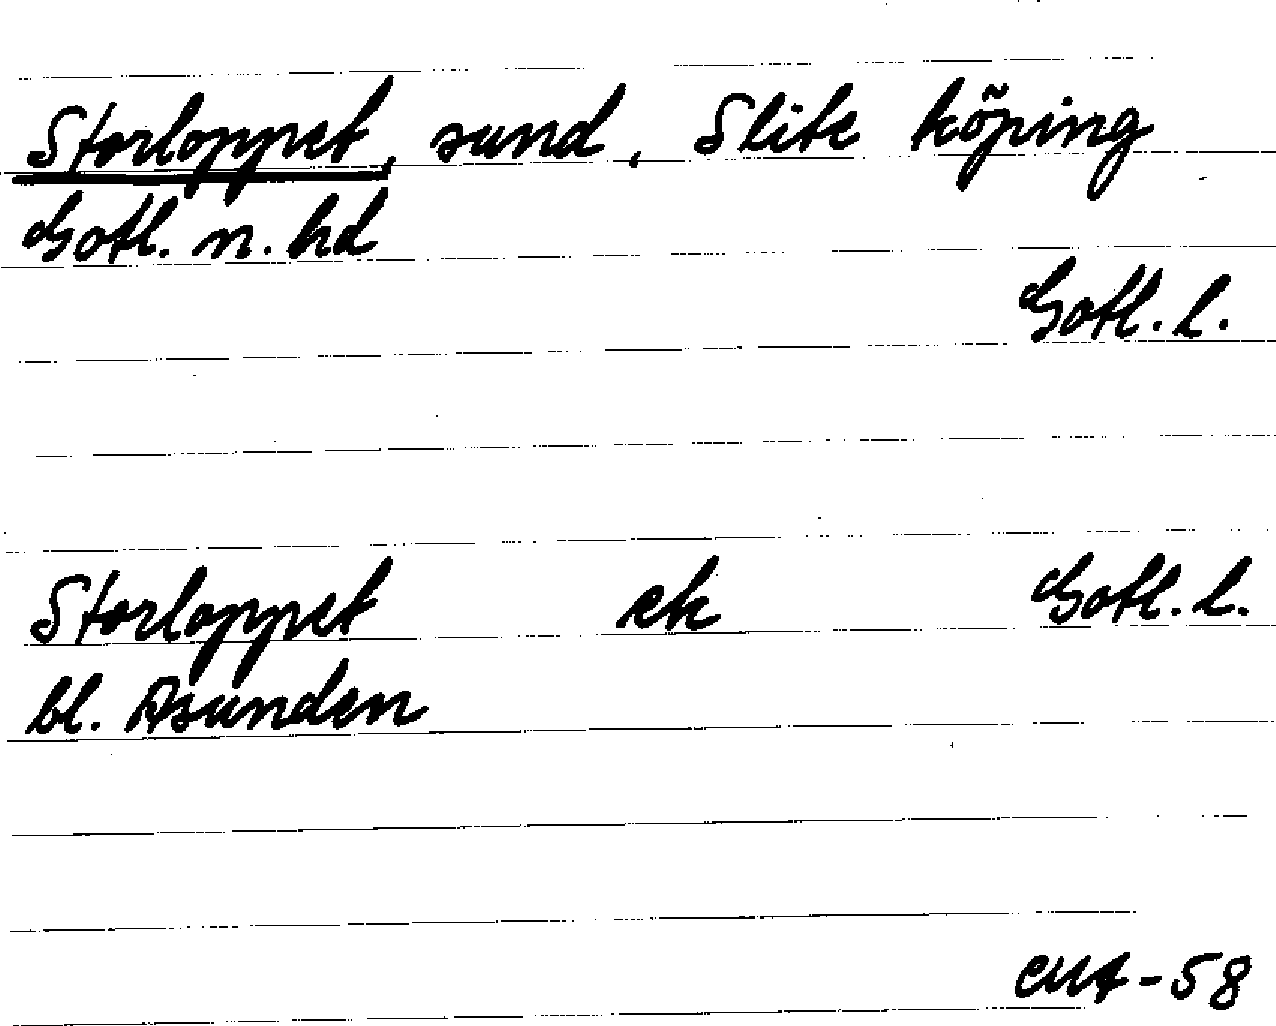 Storloppet, sund, Slite köping
Gotl. n. hd
Gotl. l.
Storloppet ek Gotl. l.
bl. Asunden
-58